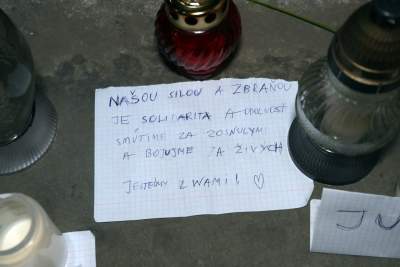 NAŠOU SILOU A ZBRAŇOU
JE SOLIDARITA A ODOLNOSŤ
SMÚTIME ZA ZOSNULÝMI
A BOJUJME ZA ŽIVÝCH
JESTEŚMY Z WAMI! ♡
JU